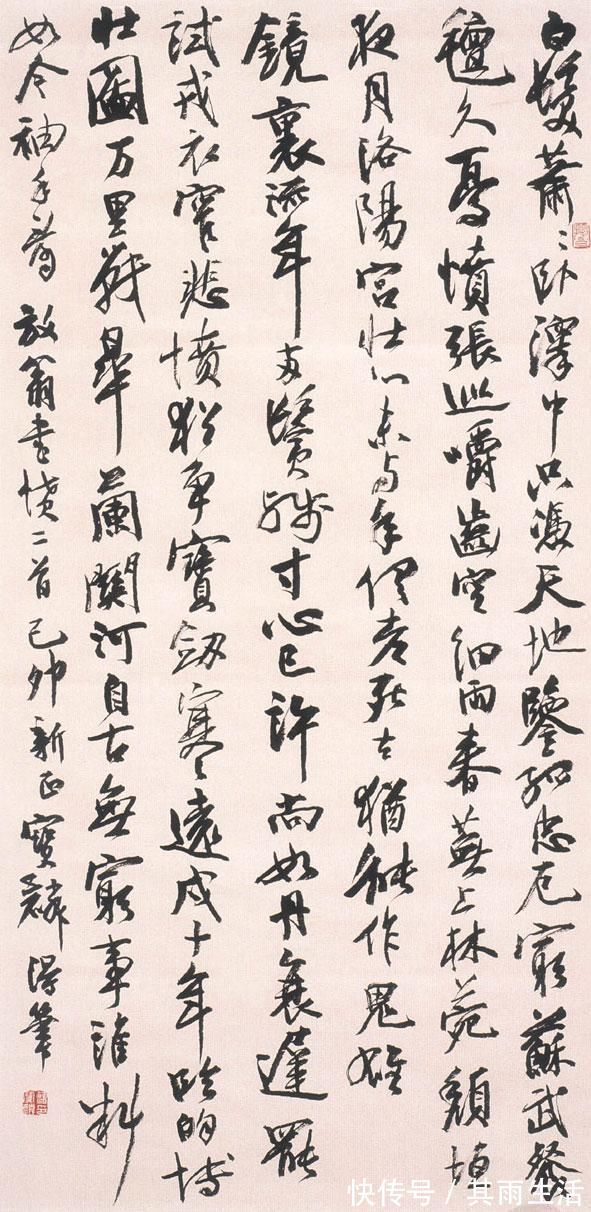 白髮蕭〻卧澤中只憑天地鑒孤忠厄窮蘇武餐
氈久憂憤張巡嚼齒空細雨春蕪上林苑頹垣
夜月洛陽宮壯心未與年俱老死去猶能作鬼雄
鏡裏流年兩鬢殘寸心已許尚如丹衰遲罷
試戎衣窄悲憤猶爭寶劍寒遠戍十年臨的博
壯圖万里戰皋蘭關河自古無窮事誰料
如今袖手看 放翁書憤二首 己卯新正寶麟筆
快传号/其雨生活